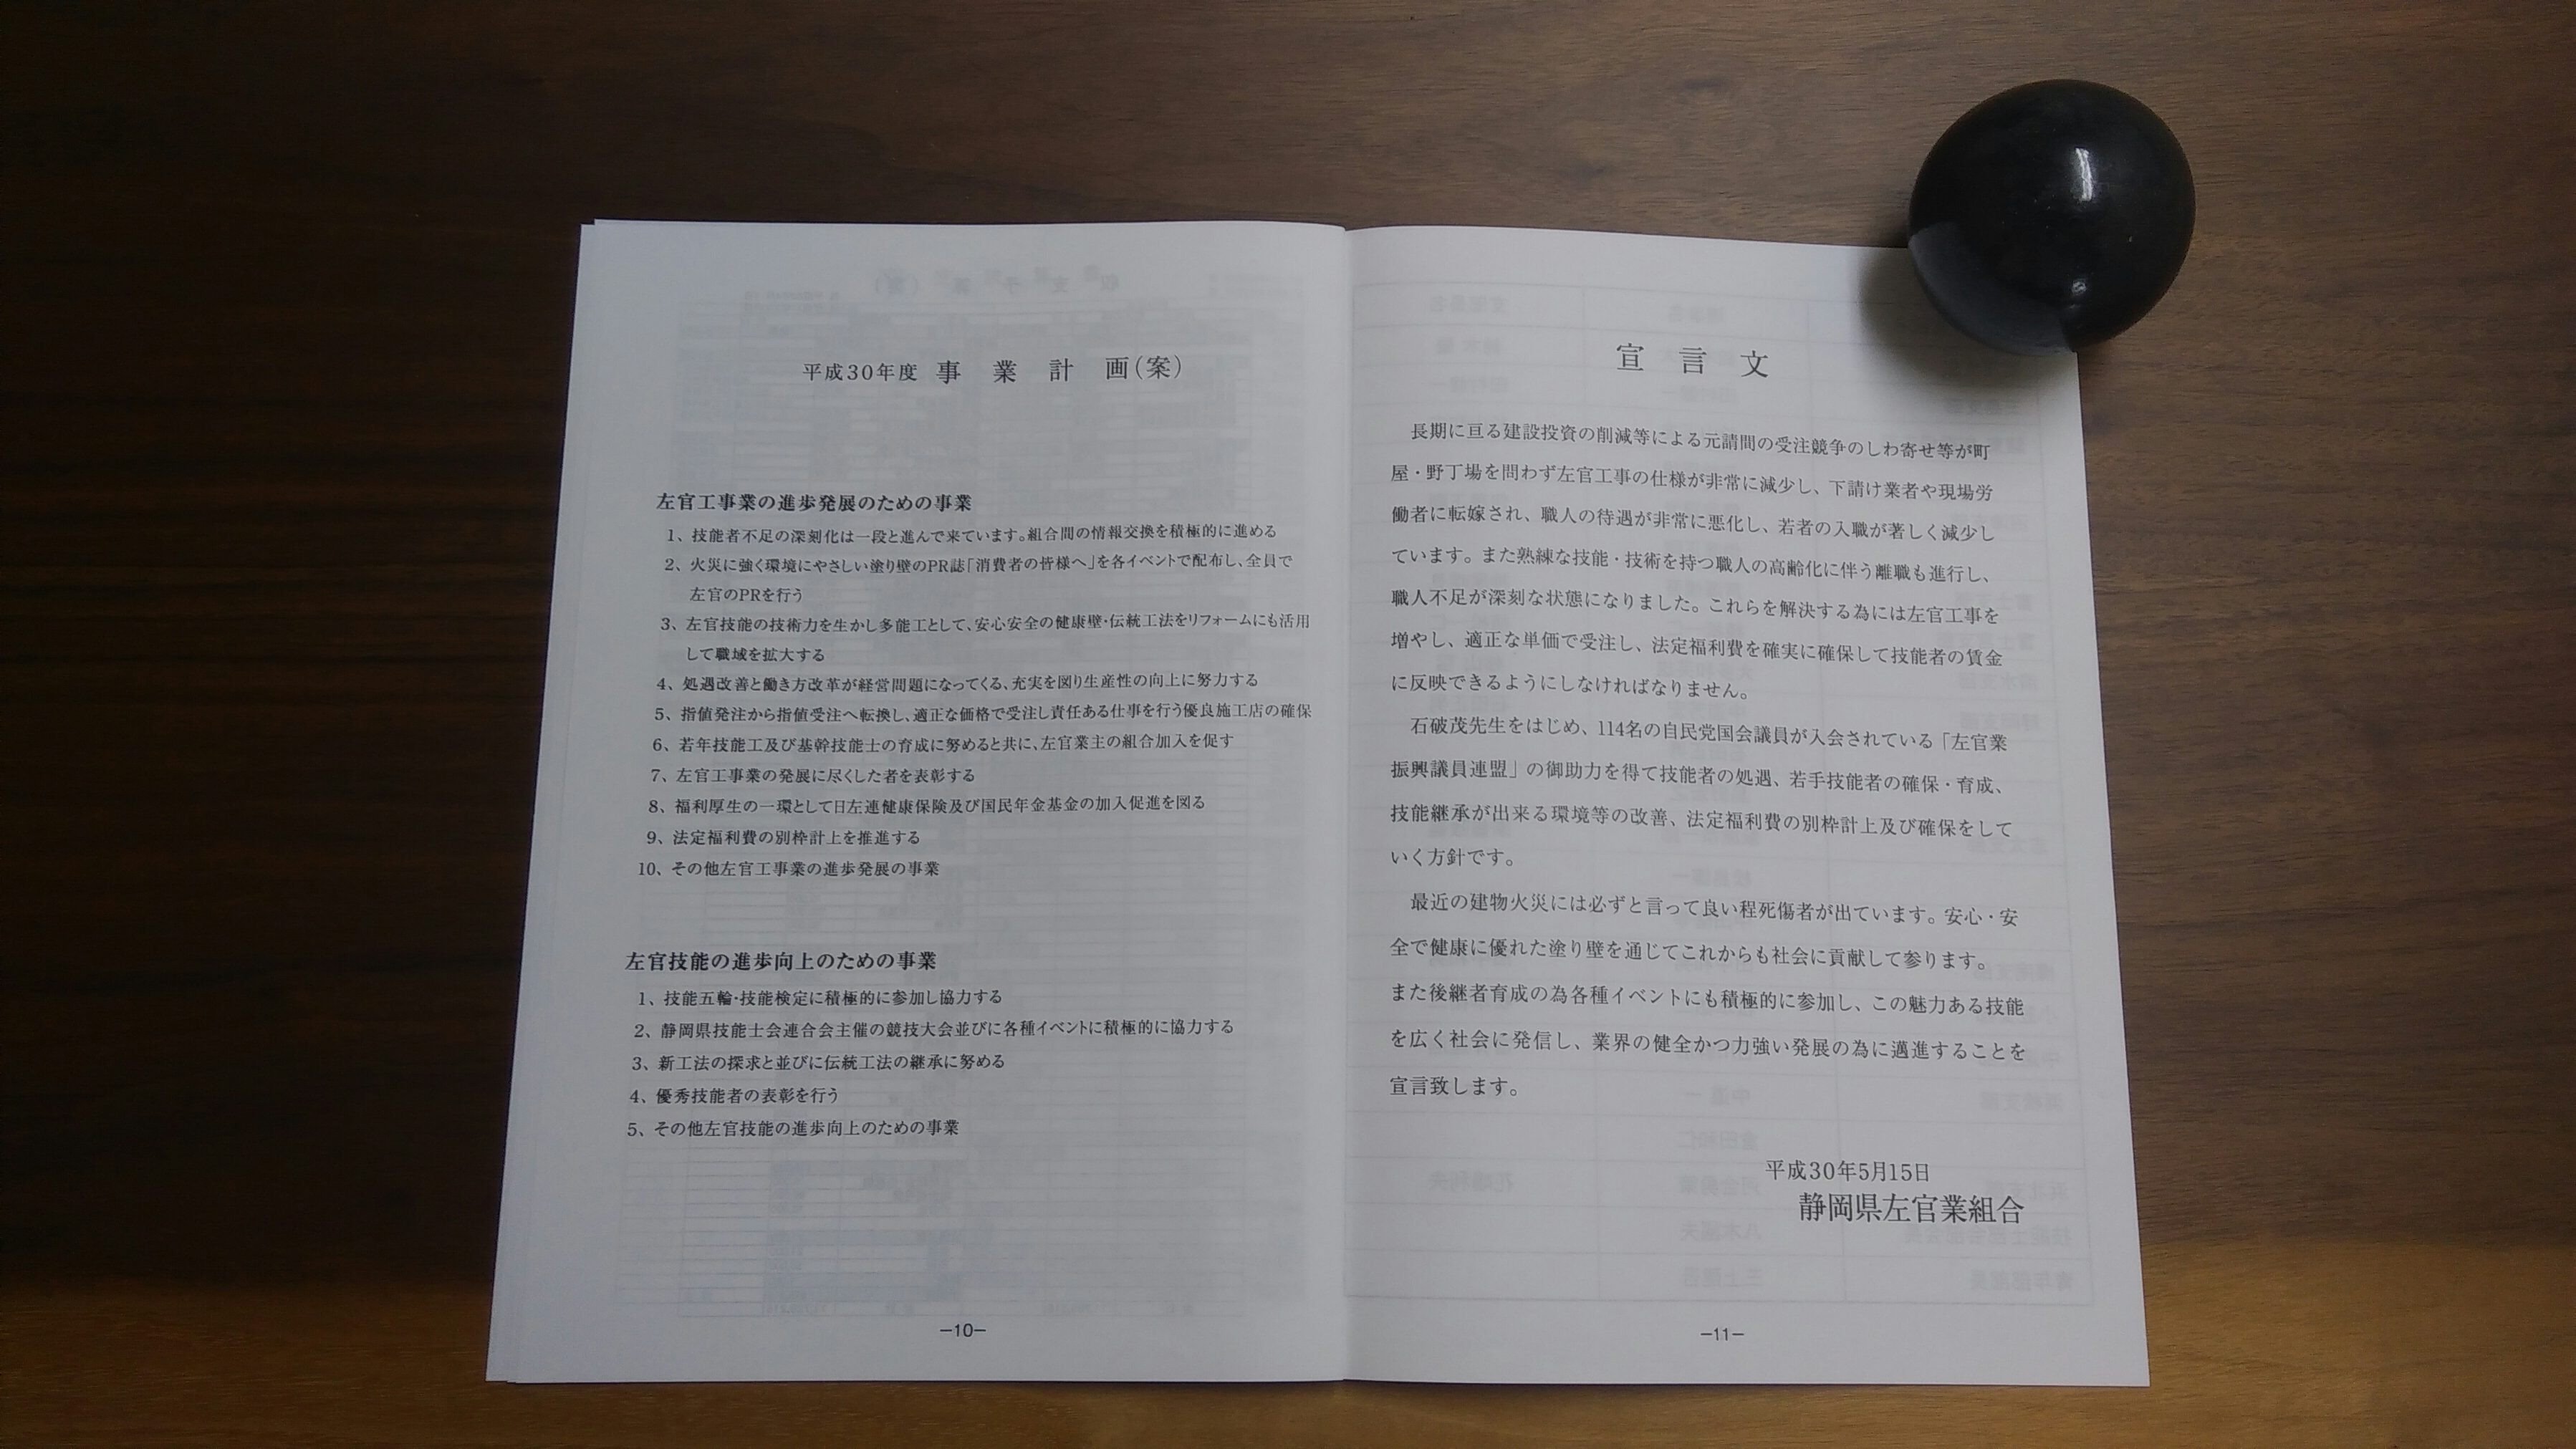 平成30年度 事業計画(案)
左官工事業の進歩発展のための事業
1、技能者不足の深刻化は一段と進んで来ています。組合間の情報交換を積極的に進める
2、火災に強く環境にやさしい塗り壁のPR誌「消費者の皆様へ」を各イベントで配布し、全員で
左官のPRを行う
3、左官技能の技術力を生かし多能工として、安心安全の健康壁・伝統工法をリフォームにも活用
して職域を拡大する
4、処遇改善と働き方改革が経営問題になってくる、充実を図り生産性の向上に努力する
5、指値発注から指値受注へ転換し、適正な価格で受注し責任ある仕事を行う優良施工店の確保
6、若年技能工及び基幹技能士の育成に努めると共に、左官業主の組合加入を促す
7、左官工事業の発展に尽くした者を表彰する
8、福利厚生の一環として日左連健康保険及び国民年金基金の加入促進を図る
9、法定福利費の別枠計上を推進する
10、その他左官工事業の進歩発展の事業
左官技能の進歩向上のための事業
1、技能五輪・技能検定に積極的に参加し協力する
2、静岡県技能士会連合会主催の競技大会並びに各種イベントに積極的に協力する
3、新工法の探求と並びに伝統工法の継承に努める
4、優秀技能者の表彰を行う
5、その他左官技能の進歩向上のための事業
－10－
宣言文
長期に亘る建設投資の削減等による元請間の受注競争のしわ寄せ等が町
屋・野丁場を問わず左官工事の仕様が非常に減少し、下請け業者や現場労
働者に転嫁され、職人の待遇が非常に悪化し、若者の入職が著しく減少し
ています。また熟練な技能・技術を持つ職人の高齢化に伴う離職も進行し、
職人不足が深刻な状態になりました。これらを解決する為には左官工事を
増やし、適正な単価で受注し、法定福利費を確実に確保して技能者の賃金
に反映できるようにしなければなりません。
石破茂先生をはじめ、114名の自民党国会議員が入会されている「左官業
振興議員連盟」の御助力を得て技能者の処遇、若手技能者の確保・育成、
技能継承が出来る環境等の改善、法定福利費の別枠計上及び確保をして
いく方針です。
最近の建物火災には必ずと言って良い程死傷者が出ています。安心・安
全で健康に優れた塗り壁を通じてこれからも社会に貢献して参ります。
また後継者育成の為各種イベントにも積極的に参加し、この魅力ある技能
を広く社会に発信し、業界の健全かつ力強い発展の為に邁進することを
宣言致します。
平成30年5月15日
静岡県左官業組合
－11－